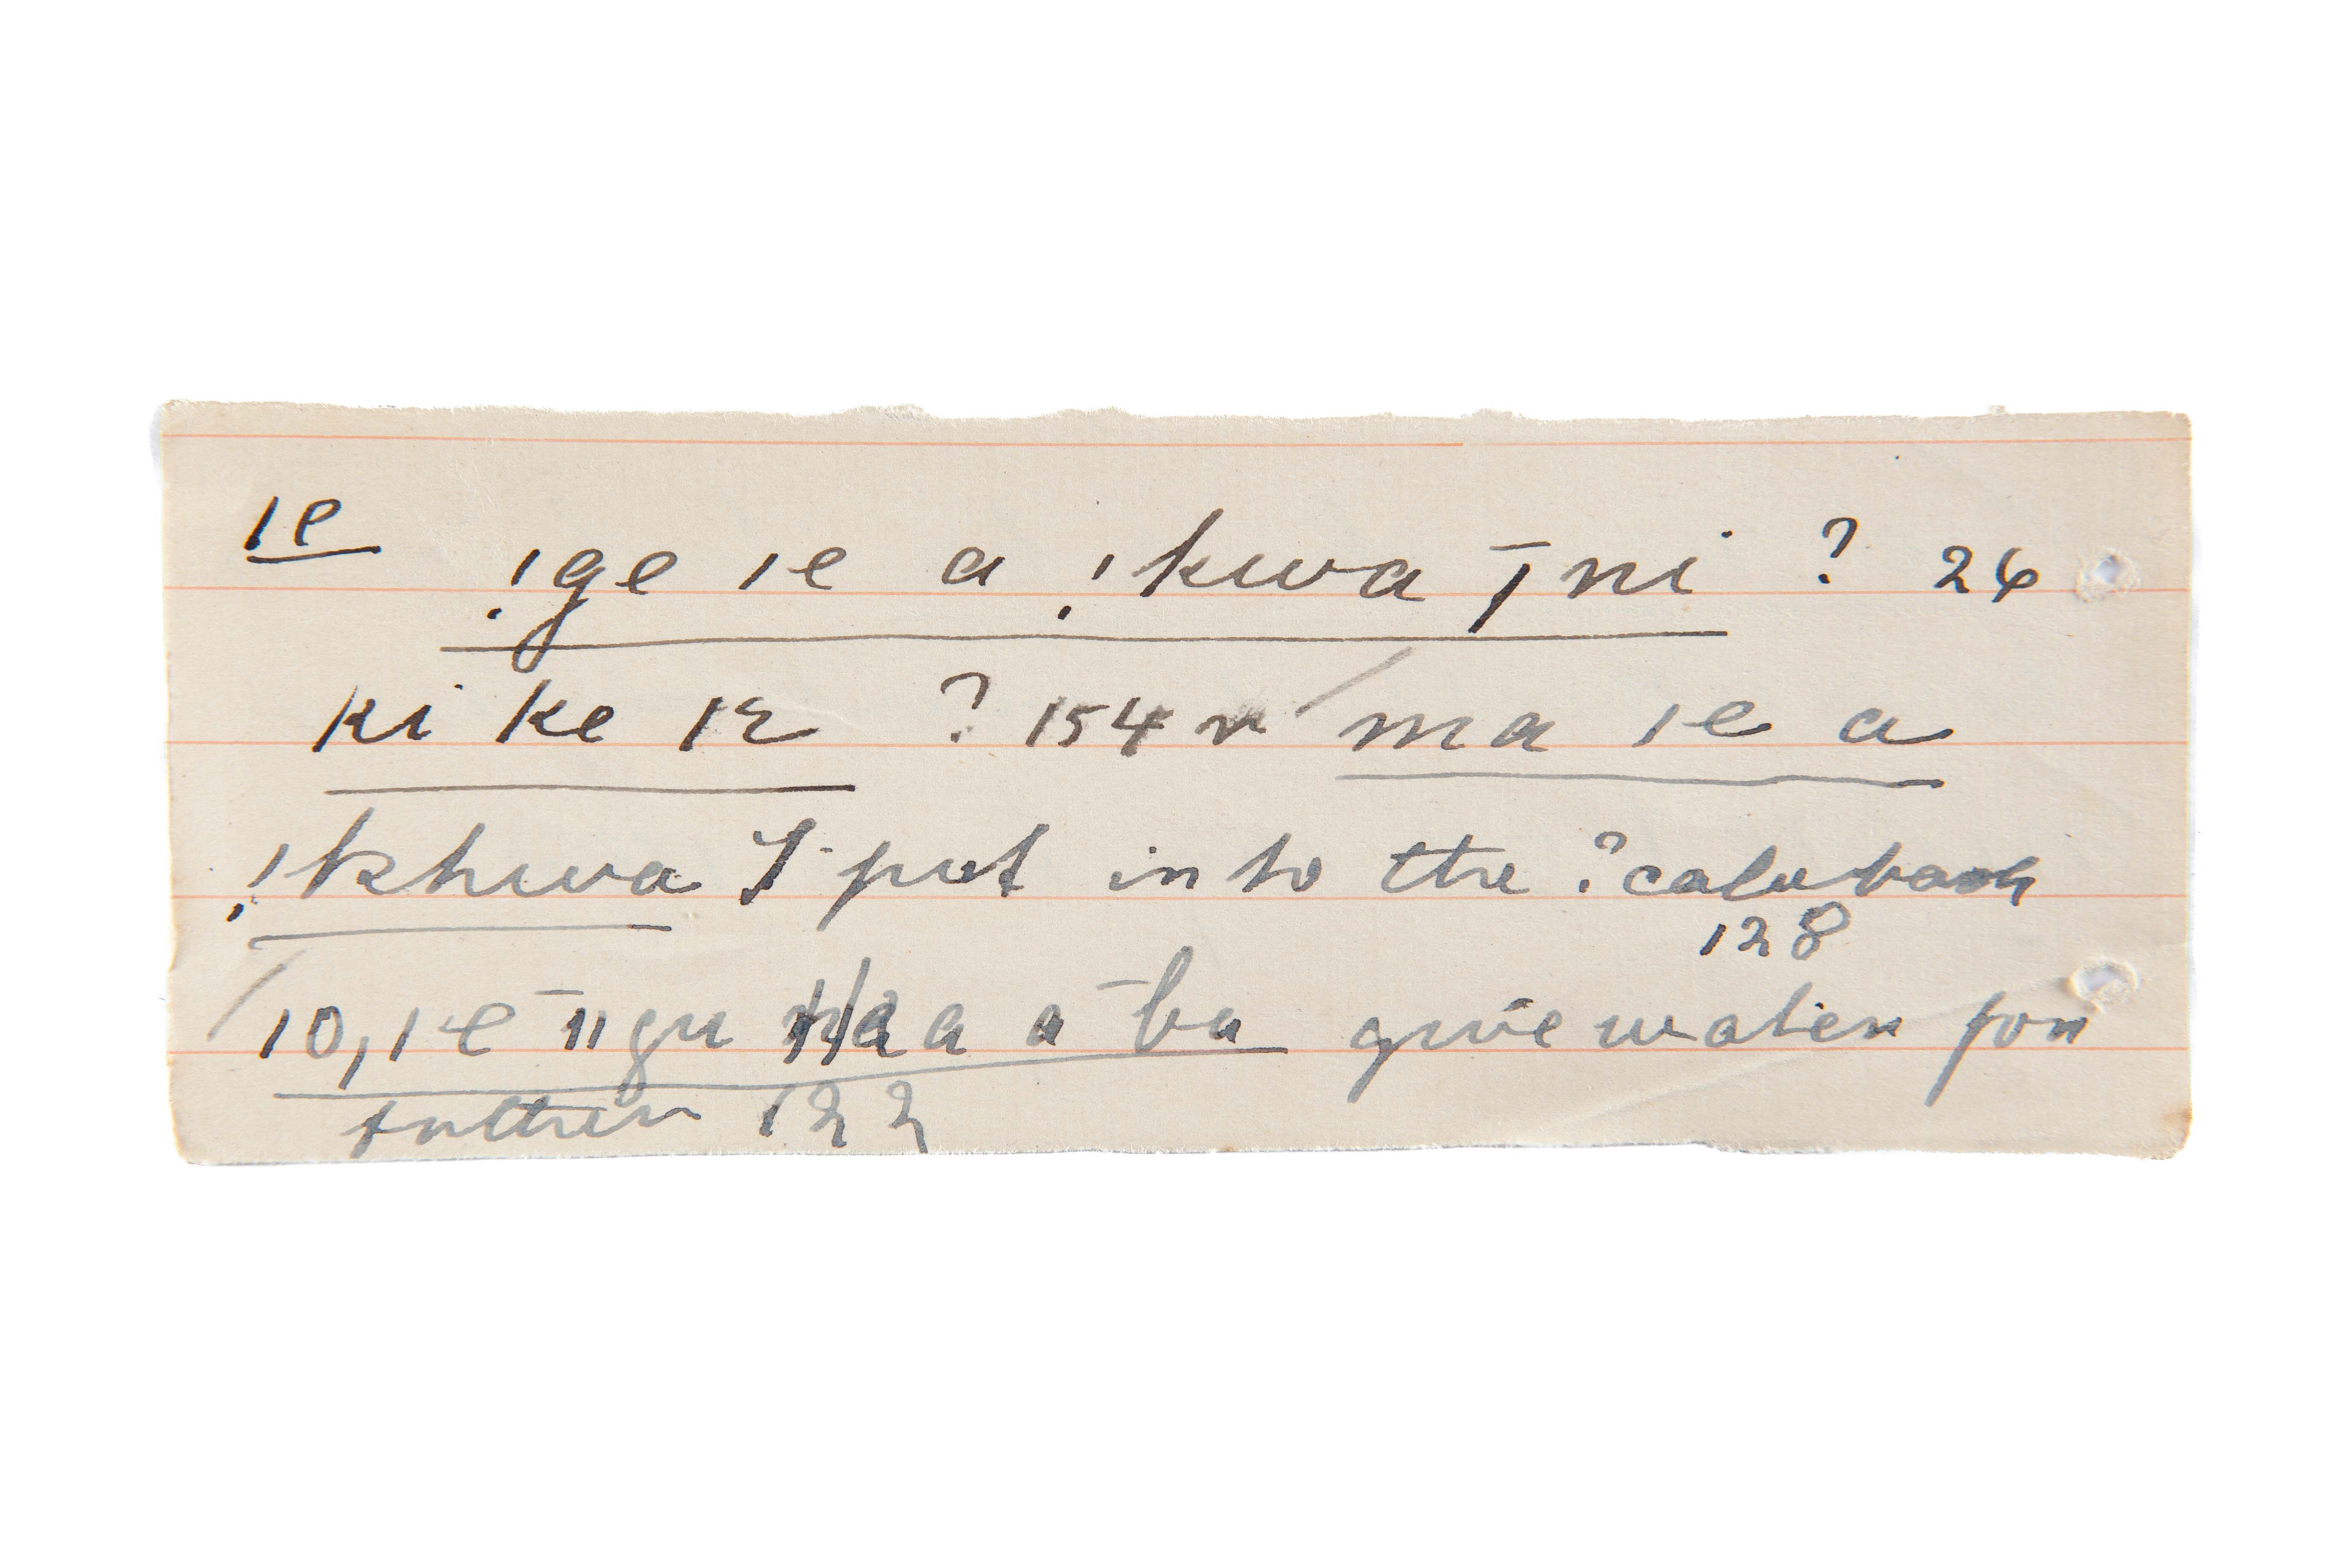 ǀe
!ge ǀe a !kwa ǀ̄ni ? 26
ki ke ǀɛ ? 154 r / ma ǀe a
!khwa I put into the ? calabash
128
/ ǀo, ǀe ‾ǁgu a a ‾ba give water for
father 122